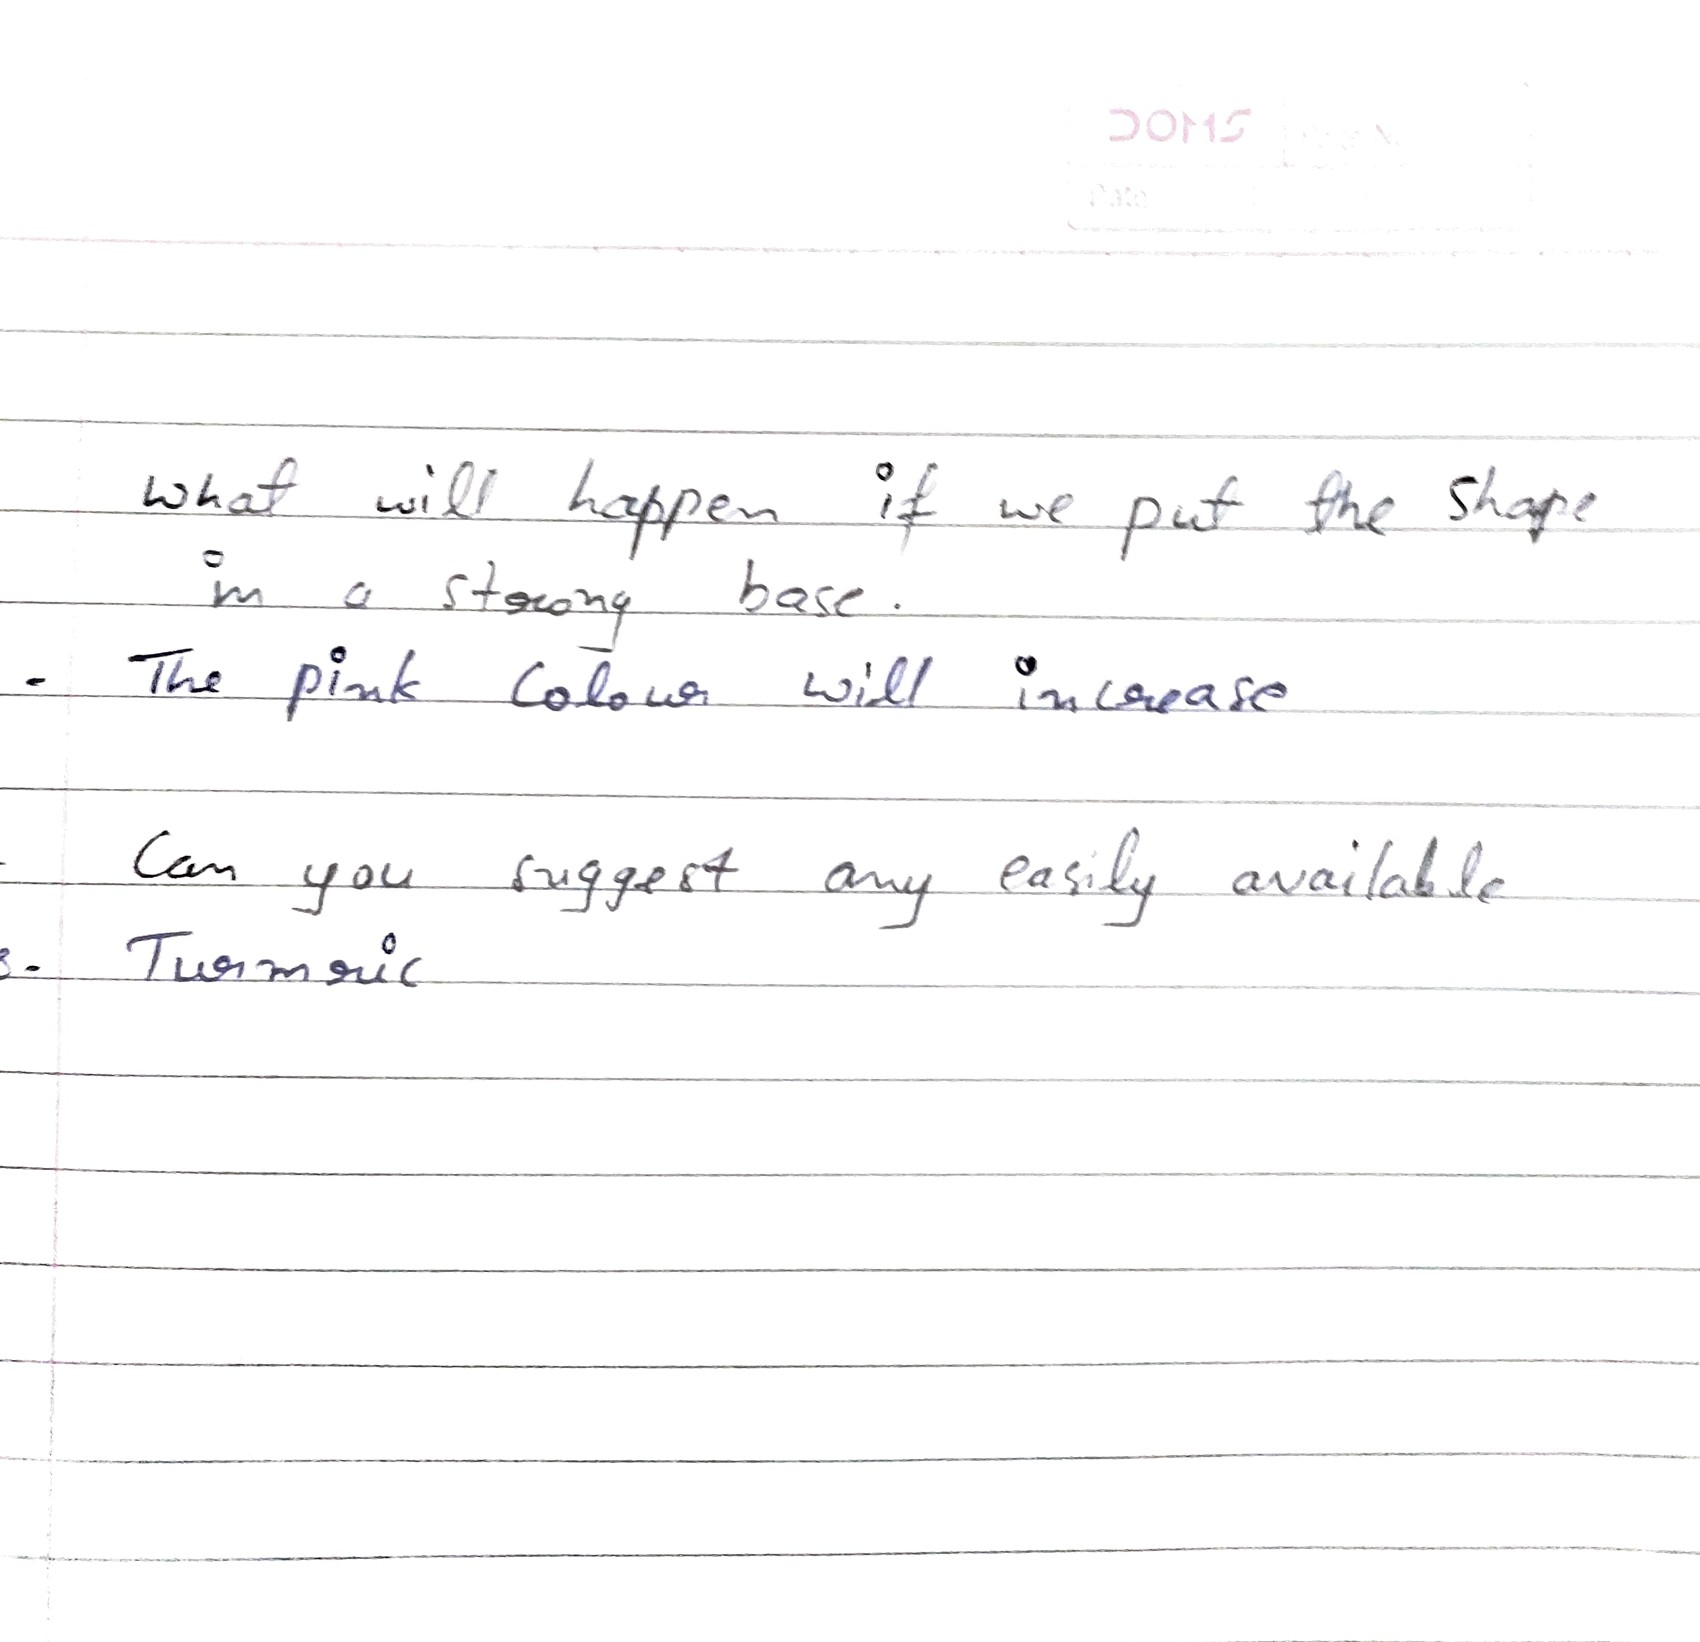 What will happen if we put the shape
in a strong base.
- The pink colour will increase
Can you suggest any easily available
- Turmeric